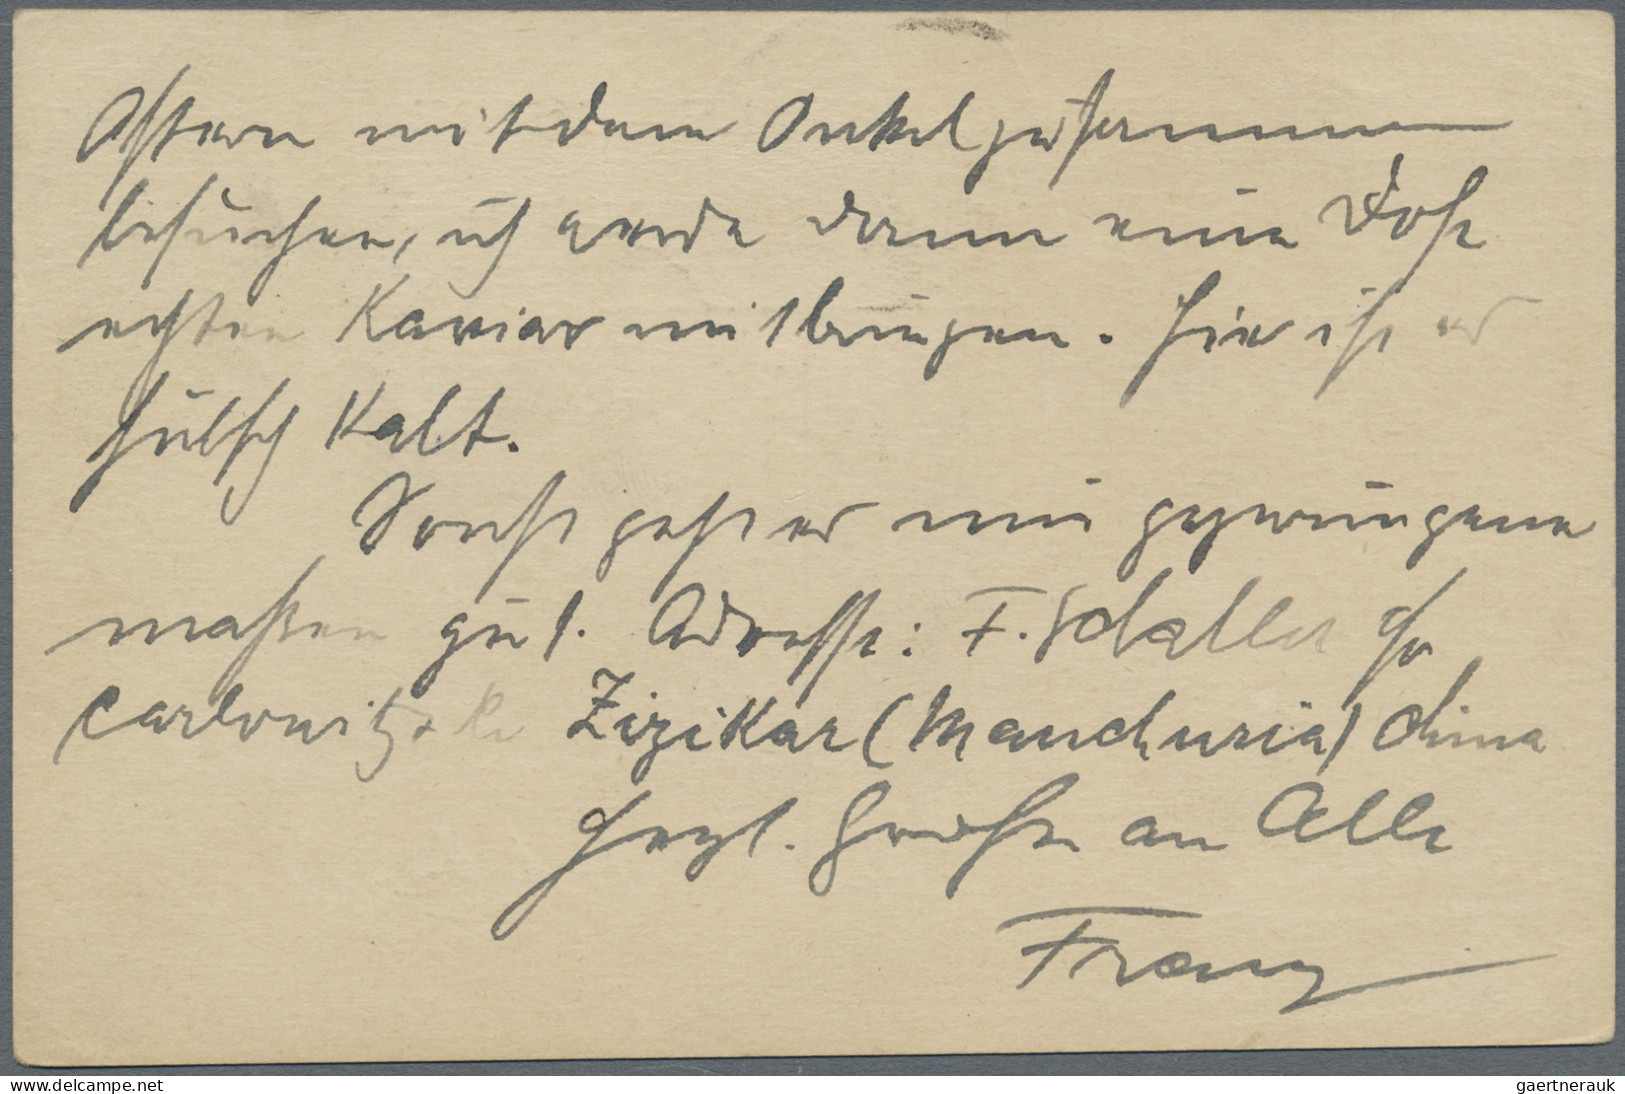 Ostern mit dem Onkel zusammen
besuchen, ich werde dann eine Dose
echten Kaviar mitbringen. Hier ist es
hübsch kalt.
Sonst geht es mir gezwungene
maßen gut. Adresse: F. Schaller c/o
Carlowitz & Co Zizikar (Manchuria) China
Herzl. Grüße an Alle
Franz
www.delcampe.net
gaertnerauk